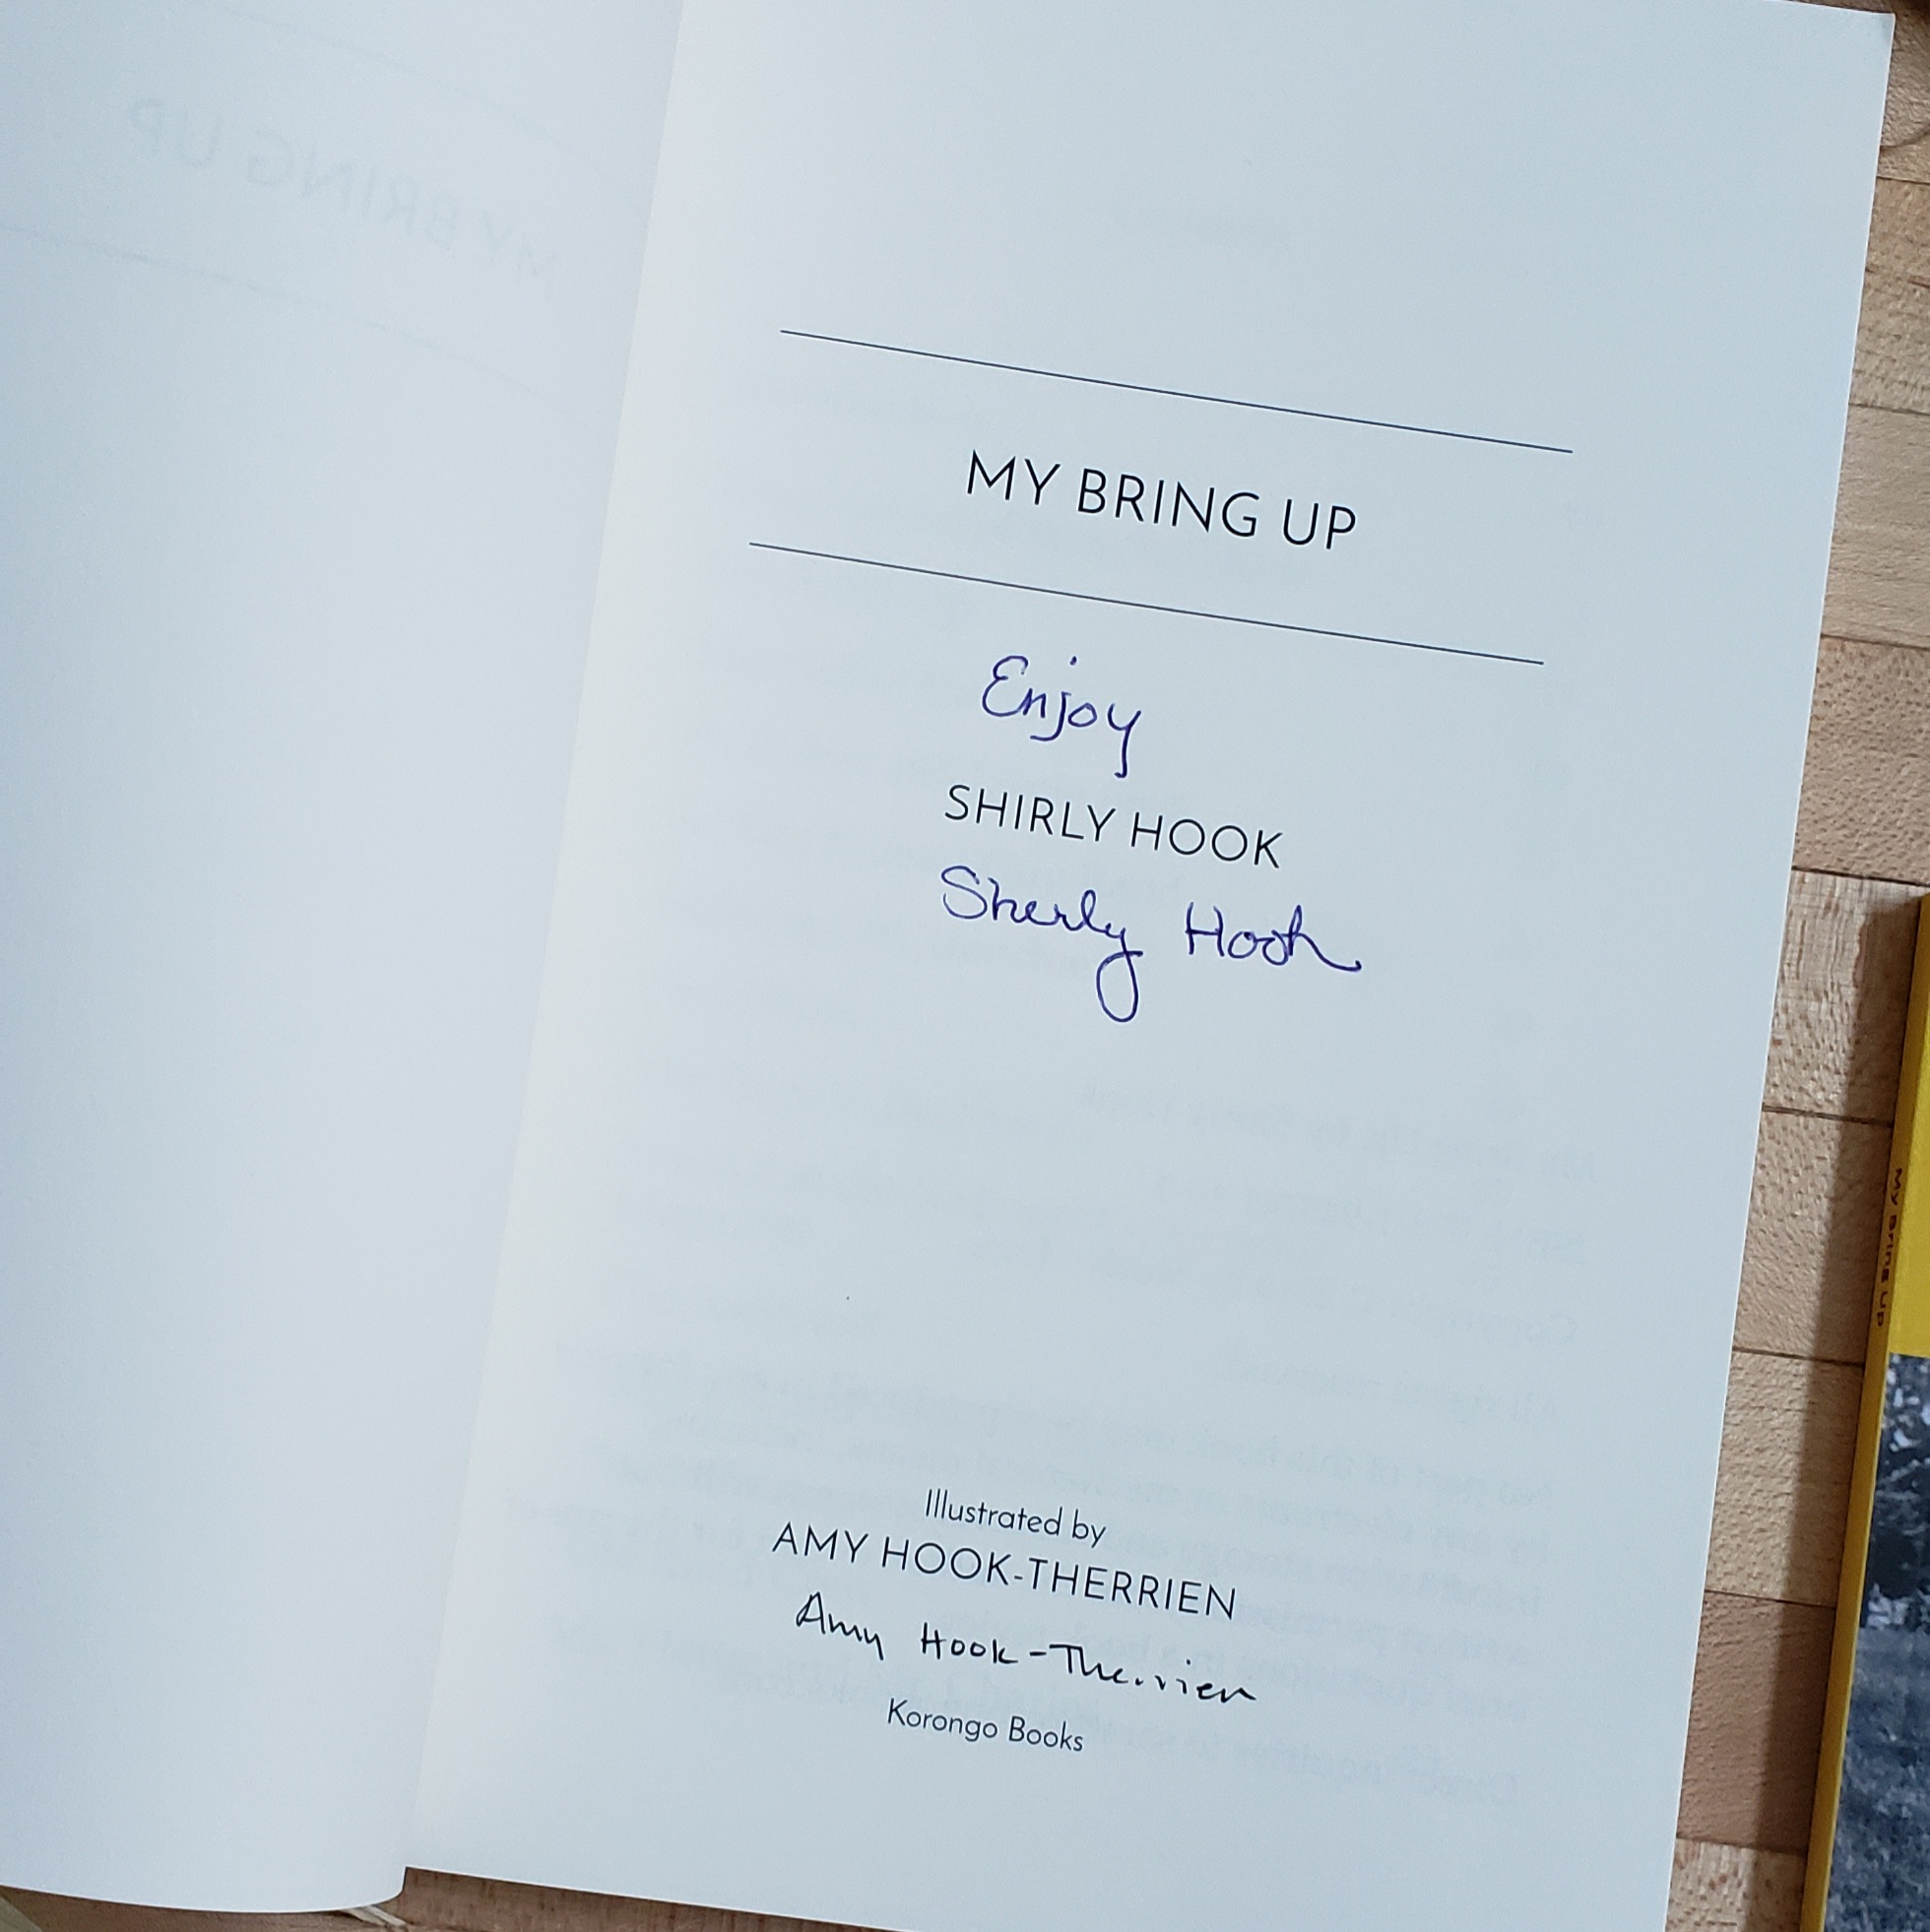 MY BRING UP
MY BRING UP
Enjoy
SHIRLY HOOK
Shirly Hook
Illustrated by
AMY HOOK-THERRIEN
Amy Hook-Therrien
Korongo Books
My Bring Up